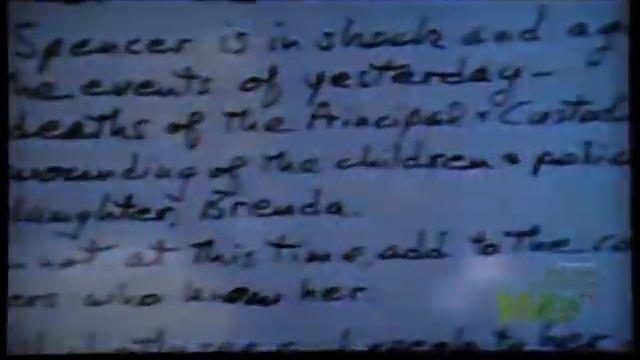 Spencer is in shock and
he events of yesterday-
deaths of the Principal & Custod
wounding of the children & polic
daughter, Brenda.
not at this time, add to the
ers who know her.